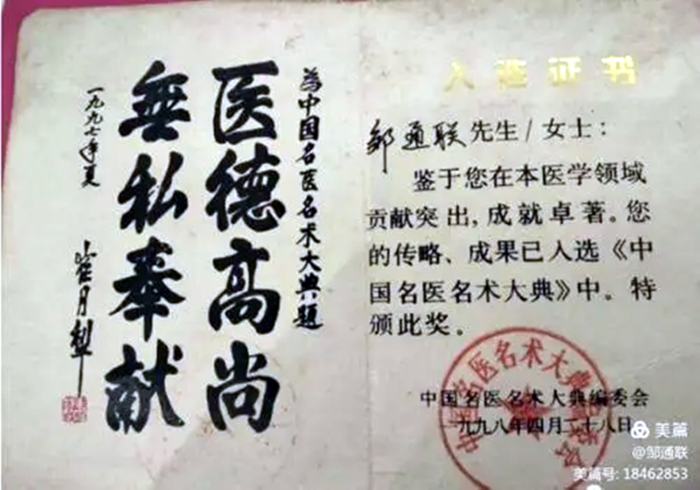 為中国名医名术大典题
医德高尚
無私奉献
一九九七年夏
崔月犁
入选证书
邹通联先生/女士：
鉴于您在本医学领域
贡献突出,成就卓著。您
的传略、成果已入选《中
国名医名术大典》中。特
颁此奖。
中国名医名术大典编委会
一九九八年四月二十八日
中国名医名术大典编委会
美篇
@邹通联
美篇号: 18462853